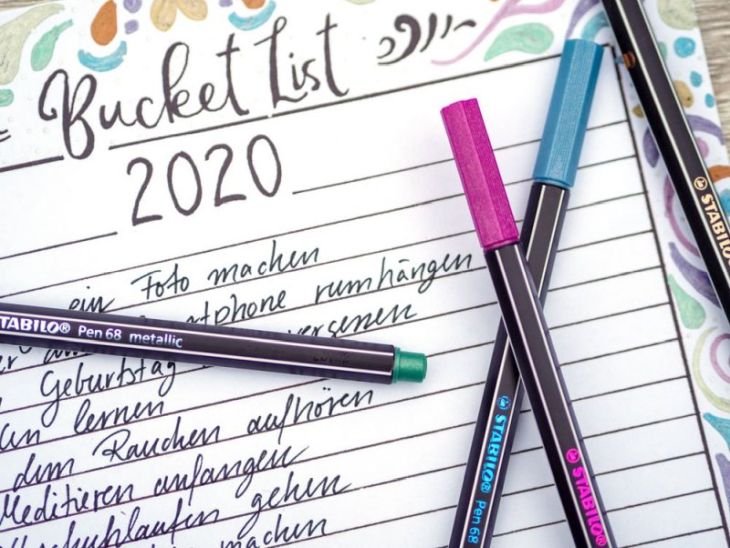 Bucket List
2020
ein Foto machen
rumhängen
Geburtstag
lernen
dem Rauchen aufhören
Meditieren anfangen
gehen
machen
STABILO® Pen 68 metallic
STABILO® Pen 68
STABILO®
STABILO®